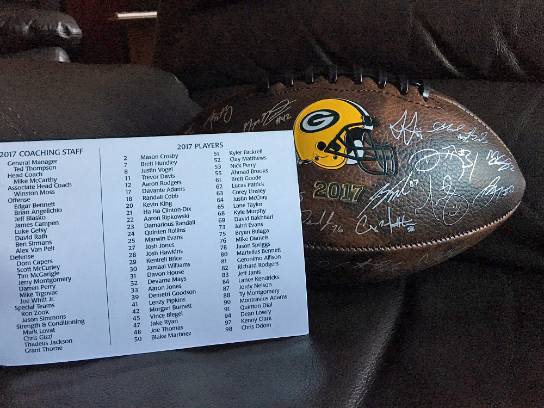 2017 COACHING STAFF
General Manager
Ted Thompson
Head Coach
Mike McCarthy
Associate Head Coach
Winston Moss
Offense
Edgar Bennett
Brian Angelichio
Jeff Blasko
James Campen
Luke Getsy
David Raih
Ben Sirmans
Alex Van Pelt
Defense
Dom Capers
Scott McCurley
Tim McGarigle
Jerry Montgomery
Darren Perry
Mike Trgovac
Joe Whitt Jr.
Special Teams
Ron Zook
Jason Simmons
Strength & Conditioning
Mark Lovat
Chris Gizzi
Thadeus Jackson
Grant Thorne
2017 PLAYERS
2 Mason Crosby
7 Brett Hundley
8 Justin Vogel
11 Trevor Davis
12 Aaron Rodgers
17 Davante Adams
18 Randall Cobb
20 Kevin King
21 Ha Ha Clinton-Dix
22 Aaron Ripkowski
23 Damarious Randall
24 Quinten Rollins
25 Marwin Evans
27 Josh Jones
28 Josh Hawkins
29 Kentrell Brice
30 Jamaal Williams
31 Davon House
32 Devante Mays
33 Aaron Jones
39 Demetri Goodson
41 Lenzy Pipkins
42 Morgan Burnett
45 Vince Biegel
47 Jake Ryan
48 Joe Thomas
50 Blake Martinez
51 Kyler Fackrell
52 Clay Matthews
53 Nick Perry
55 Ahmad Brooks
61 Brett Goode
62 Lucas Patrick
63 Corey Linsley
64 Justin McCray
65 Lane Taylor
68 Kyle Murphy
69 David Bakhtiari
73 Jahri Evans
75 Bryan Bulaga
76 Mike Daniels
78 Jason Spriggs
80 Martellus Bennett
81 Geronimo Allison
82 Richard Rodgers
83 Jeff Janis
84 Lance Kendricks
87 Jordy Nelson
88 Ty Montgomery
90 Montravius Adams
91 Quinton Dial
94 Dean Lowry
97 Kenny Clark
98 Chris Odom
G
2017